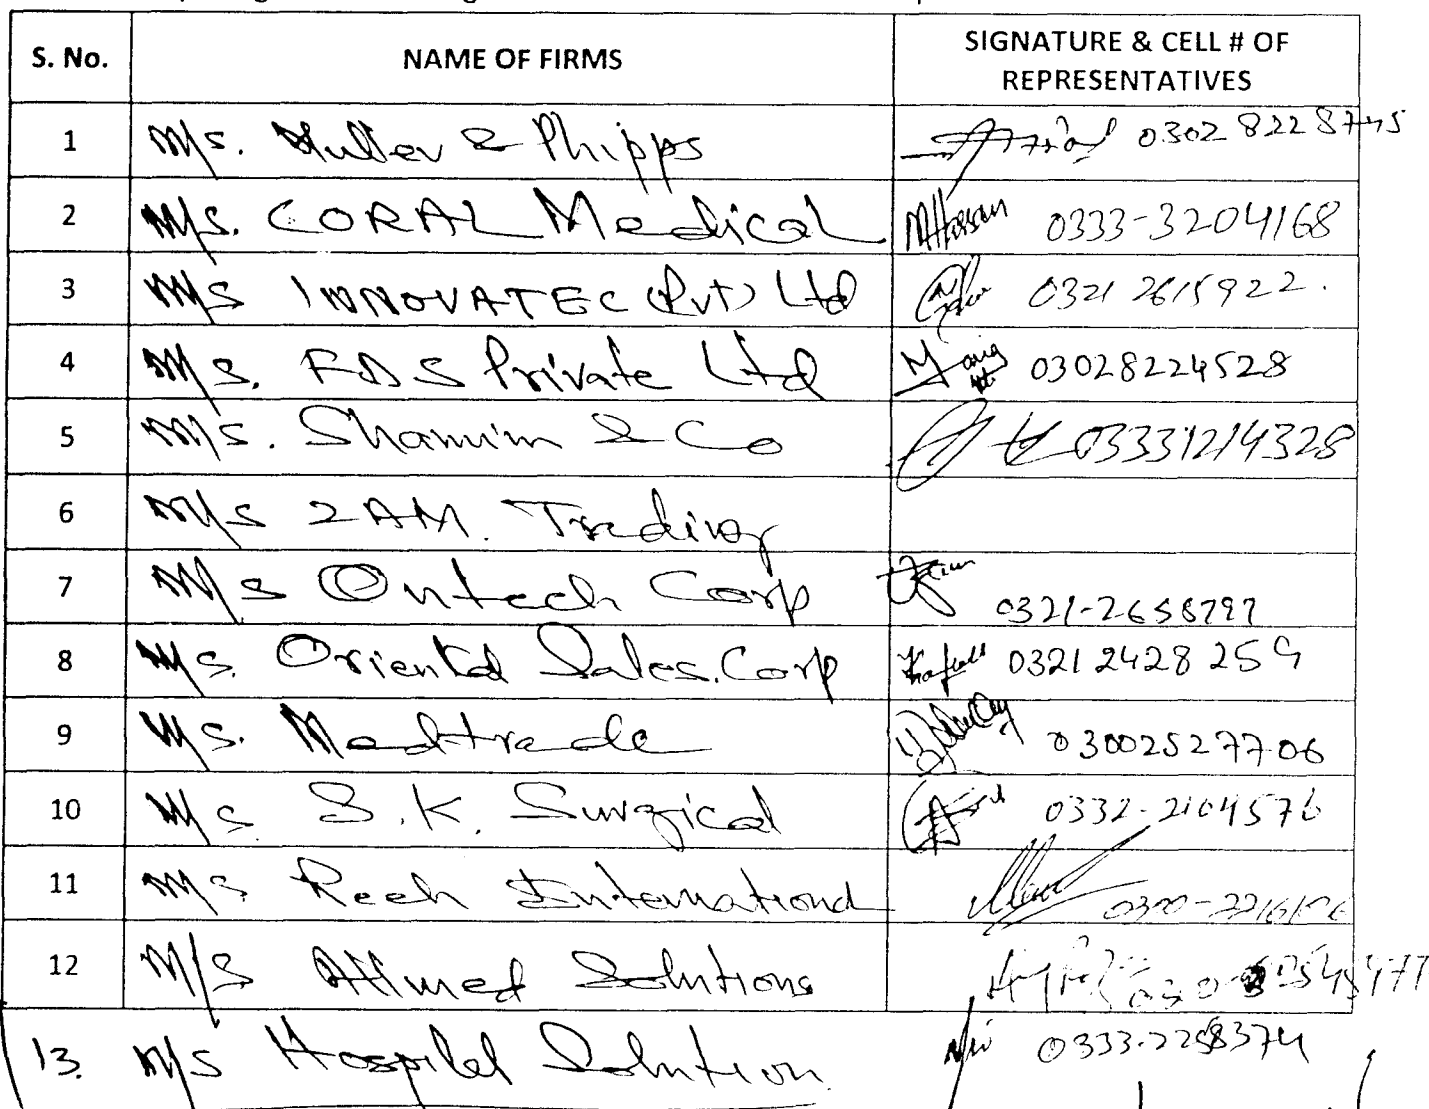 S. No. NAME OF FIRMS SIGNATURE & CELL # OF
REPRESENTATIVES
1 M/s. Muller & Phipps 0302 8228745
2 M/s. CORAL Medical MHassan 0333-3204168
3 M/s INNOVATEC (Pvt) Ltd 0321 2615922.
4 M/s. FDS Private Ltd 03028224528
5 M/s. Shamim & Co 03331214328
6 M/s 2AM. Trading
7 M/s Ontech Corp
0321-2658797
8 M/s. Oriental Sales. Corp 0321 2428 259
9 M/s. Medtrade 03002527706
10 M/s. S.K. Surgical 0332-2104576
11 M/s. Reeh International
12 M/s Allmed Solutions
13. M/s Hospital Solution 0333-2258374